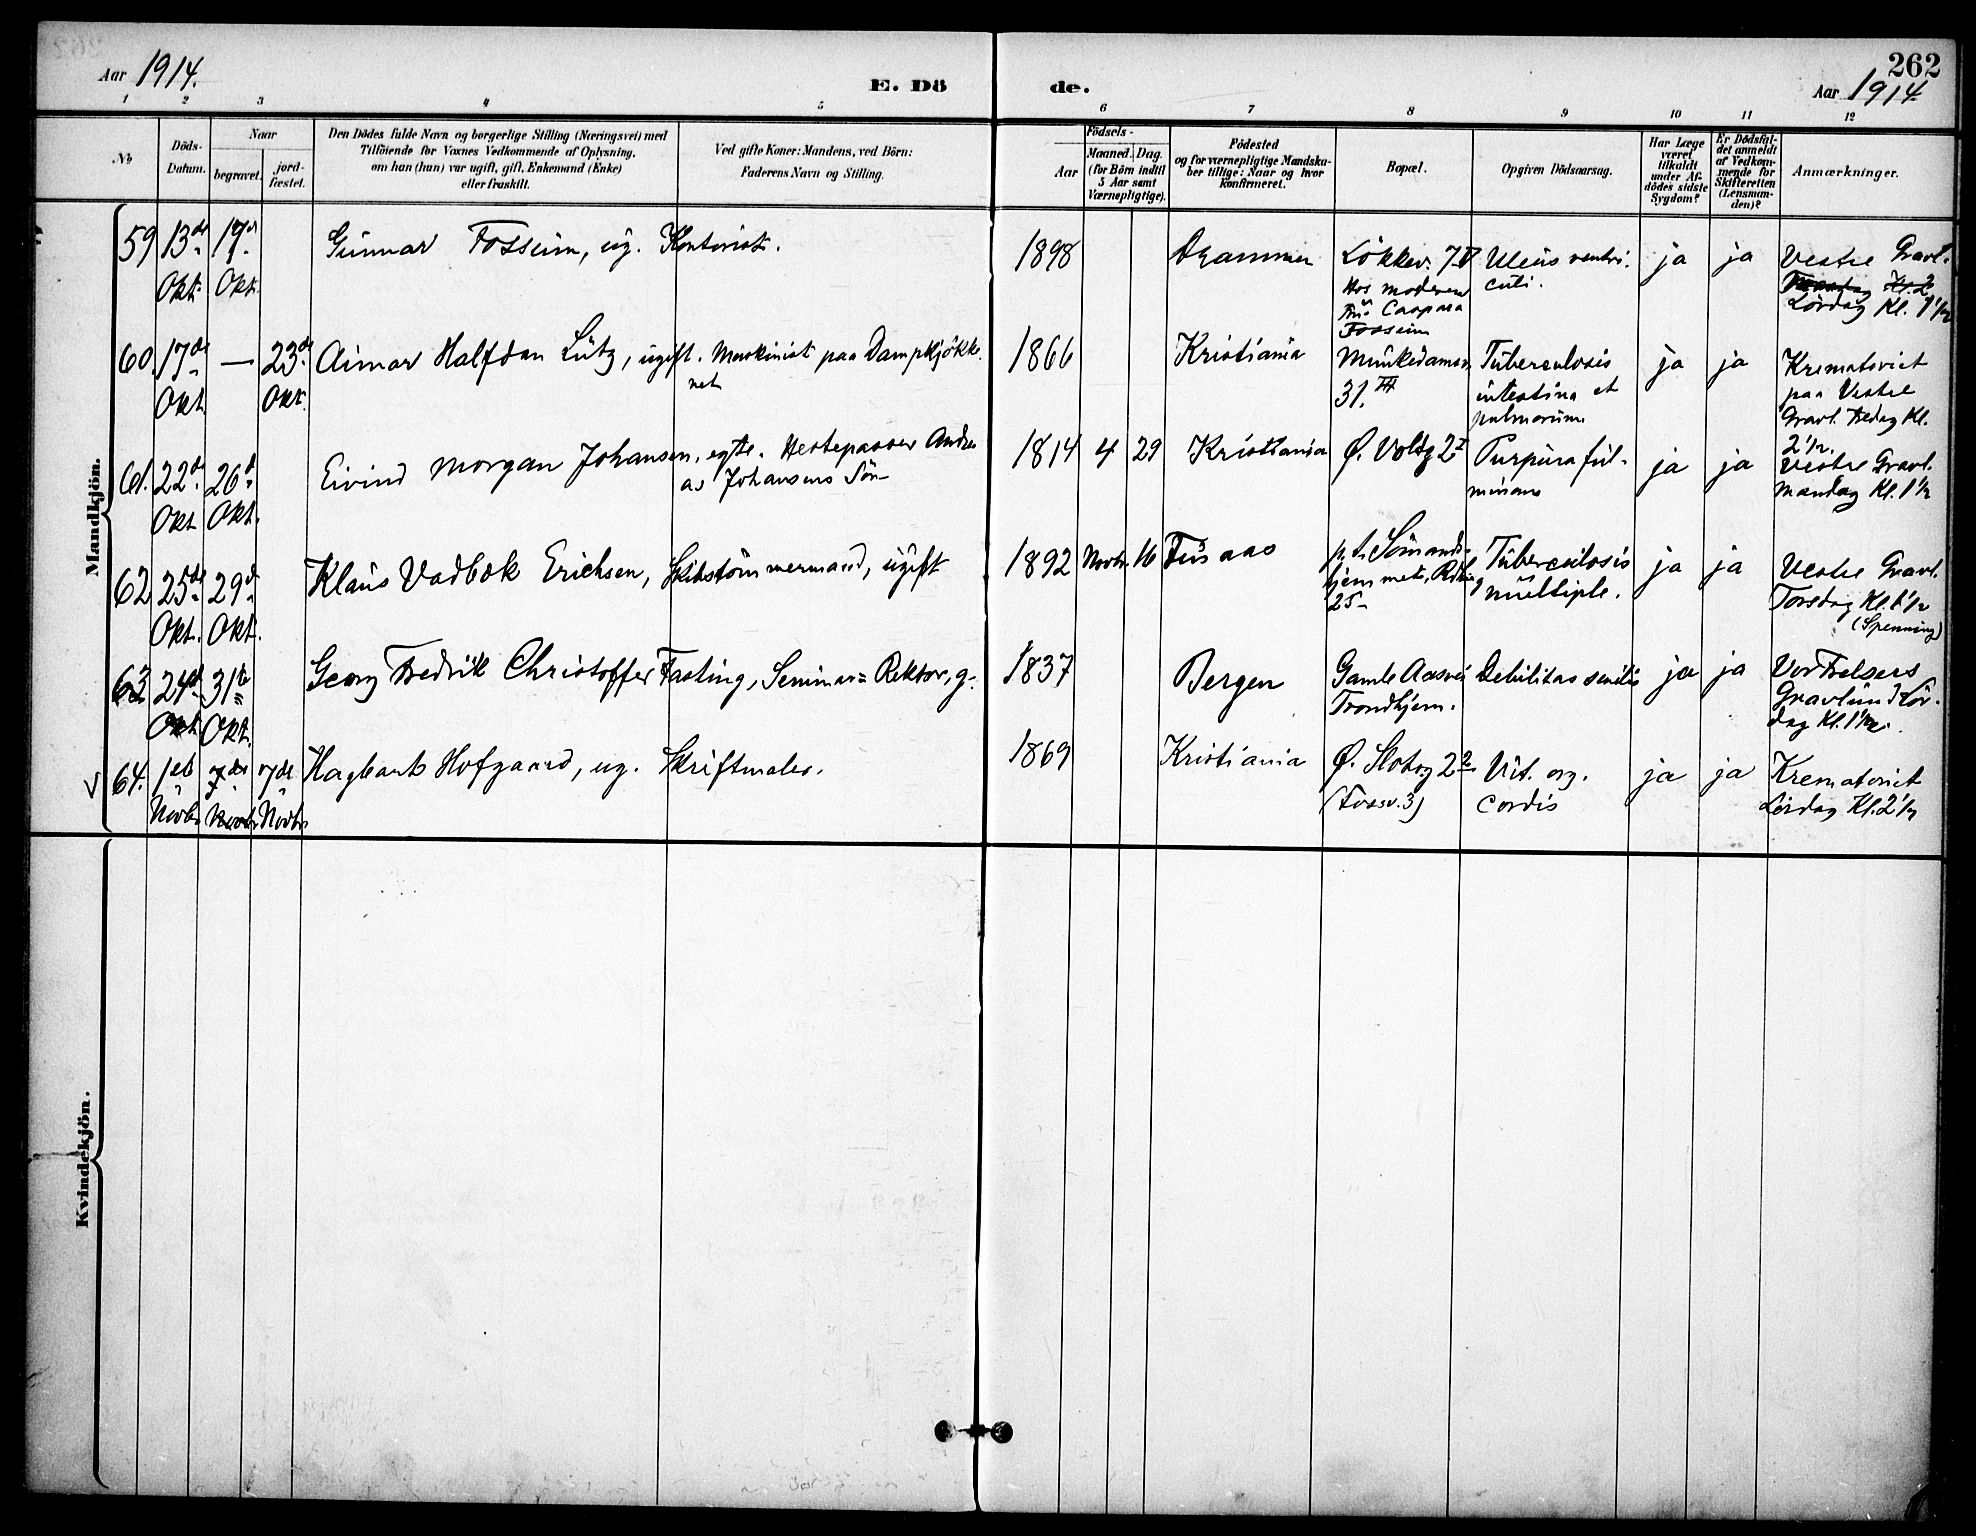 262
Aar 1914.
E. Dö
de.
Aar 1914.
1 2 3 4 5 6 7 8 9 10 11 12
No
Döds-
Datum.
Naar
begravet.
jord-
fæstet.
Den Dödes fulde Navn og borgerlige Stilling (Næringsvei) med
Tilföiende for Voxnes Vedkommende af Oplysning,
om han (hun) var ugift, gift, Enkemand (Enke)
eller fraskilt.
Ved gifte Koner: Mandens, ved Börn:
Faderens Navn og Stilling.
Födsels-
Aar
Maaned. Dag.
(for Börn indtil
5 Aar samt
Værnepligtige).
Födested
og for værnepligtige Mandska-
ber tillige: Naar og hvor
konfirmeret.
Bopæl.
Opgiven Dödsaarsag.
Har Læge
været
tilkaldt
under Af-
dödes sidste
Sygdom?
Er Dödsfal-
det anmeldt
af Vedkom-
mende for
Skifteretten
(Lensman-
den)?
Anmærkninger.
Mandkjön.
59 13de Okt. 17d Okt.
Gunnar Fossum, ug. Kontorist.
1898 Drammen
Lökkev. 7
Hos moderen
Fru Caspara
Fossum
Ulcus ventri-
culi.
ja ja
Vestre Gravl.
Lördag Kl. 1½
60 17de Okt — 23de Okt.
Aimar Halfdan Lütz, ugift. Maskinist paa Dampkjökke
net
1866 Kristiania
Munkedamsv.
31. III
Tuberculosis
intestina et
pulmorum
ja ja
Krematoriet
paa Vestre
Gravl. Fredag Kl.
2½.
61. 22de Okt 26d Okt.
Eivind Morgan Johansen, egte. Hestepasser Andre
as Johansens Sön
1914 4 29 Kristiania
Ö. Voldg 2 I
Purpura ful-
minans
ja ja
Vestre Gravl.
Mandag Kl. 1½
62 25de Okt. 29d Okt.
Klaus Vadbæk Erichsen, Skibstömmermand, ugift
1892 Novbr. 16 Fusaas
p.t. Sömands-
hjemmet,
25
Tuberculosis
multiple.
ja ja
Vestre Gravl.
Torsdag Kl. 1½
(Spenning)
63 24de Okt 31te Okt.
Georg Fredrik Christoffer Fasting, Seminar= Rektor, g.
1837 Bergen
Gamle Aasvei
Trondhjem.
Debilitas senilis
ja ja
Vor Frelsers
Gravlund Lör-
dag Kl. 1½.
V 64. 1ste Novbr 7de Novbr 7de Novbr
Hagbart Hofgaard, ug. Skriftmaler.
1869 Kristiania
Ö. Slotsg 2
(Fossv. 3)
Vit. org.
cordis
ja ja
Krematoriet
Lördag Kl. 2½
Kvindekjön.